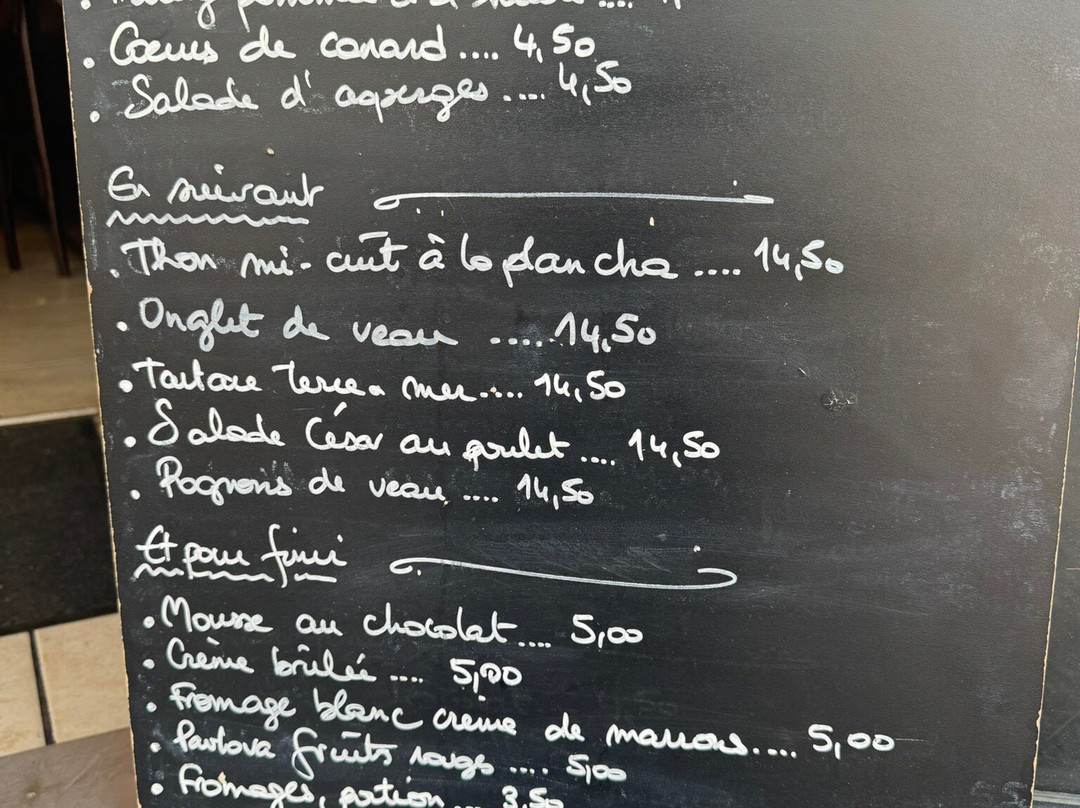 . Coeurs de canard .... 4,50
. Salade d'asperges .... 4,50
En suivant
. Thon mi-cuit à la plancha .... 14,50
. Onglet de veau ..... 14,50
. Tartare terre mer .... 14,50
. Salade César au poulet .... 14,50
. Rognons de veau .... 14,50
Et pour finir
. Mousse au chocolat .... 5,00
. Crème brûlée .... 5,00
. Fromage blanc crème de marrons .... 5,00
. Pavlova fruits rouges .... 5,00
. Fromages, portion ... 3,50